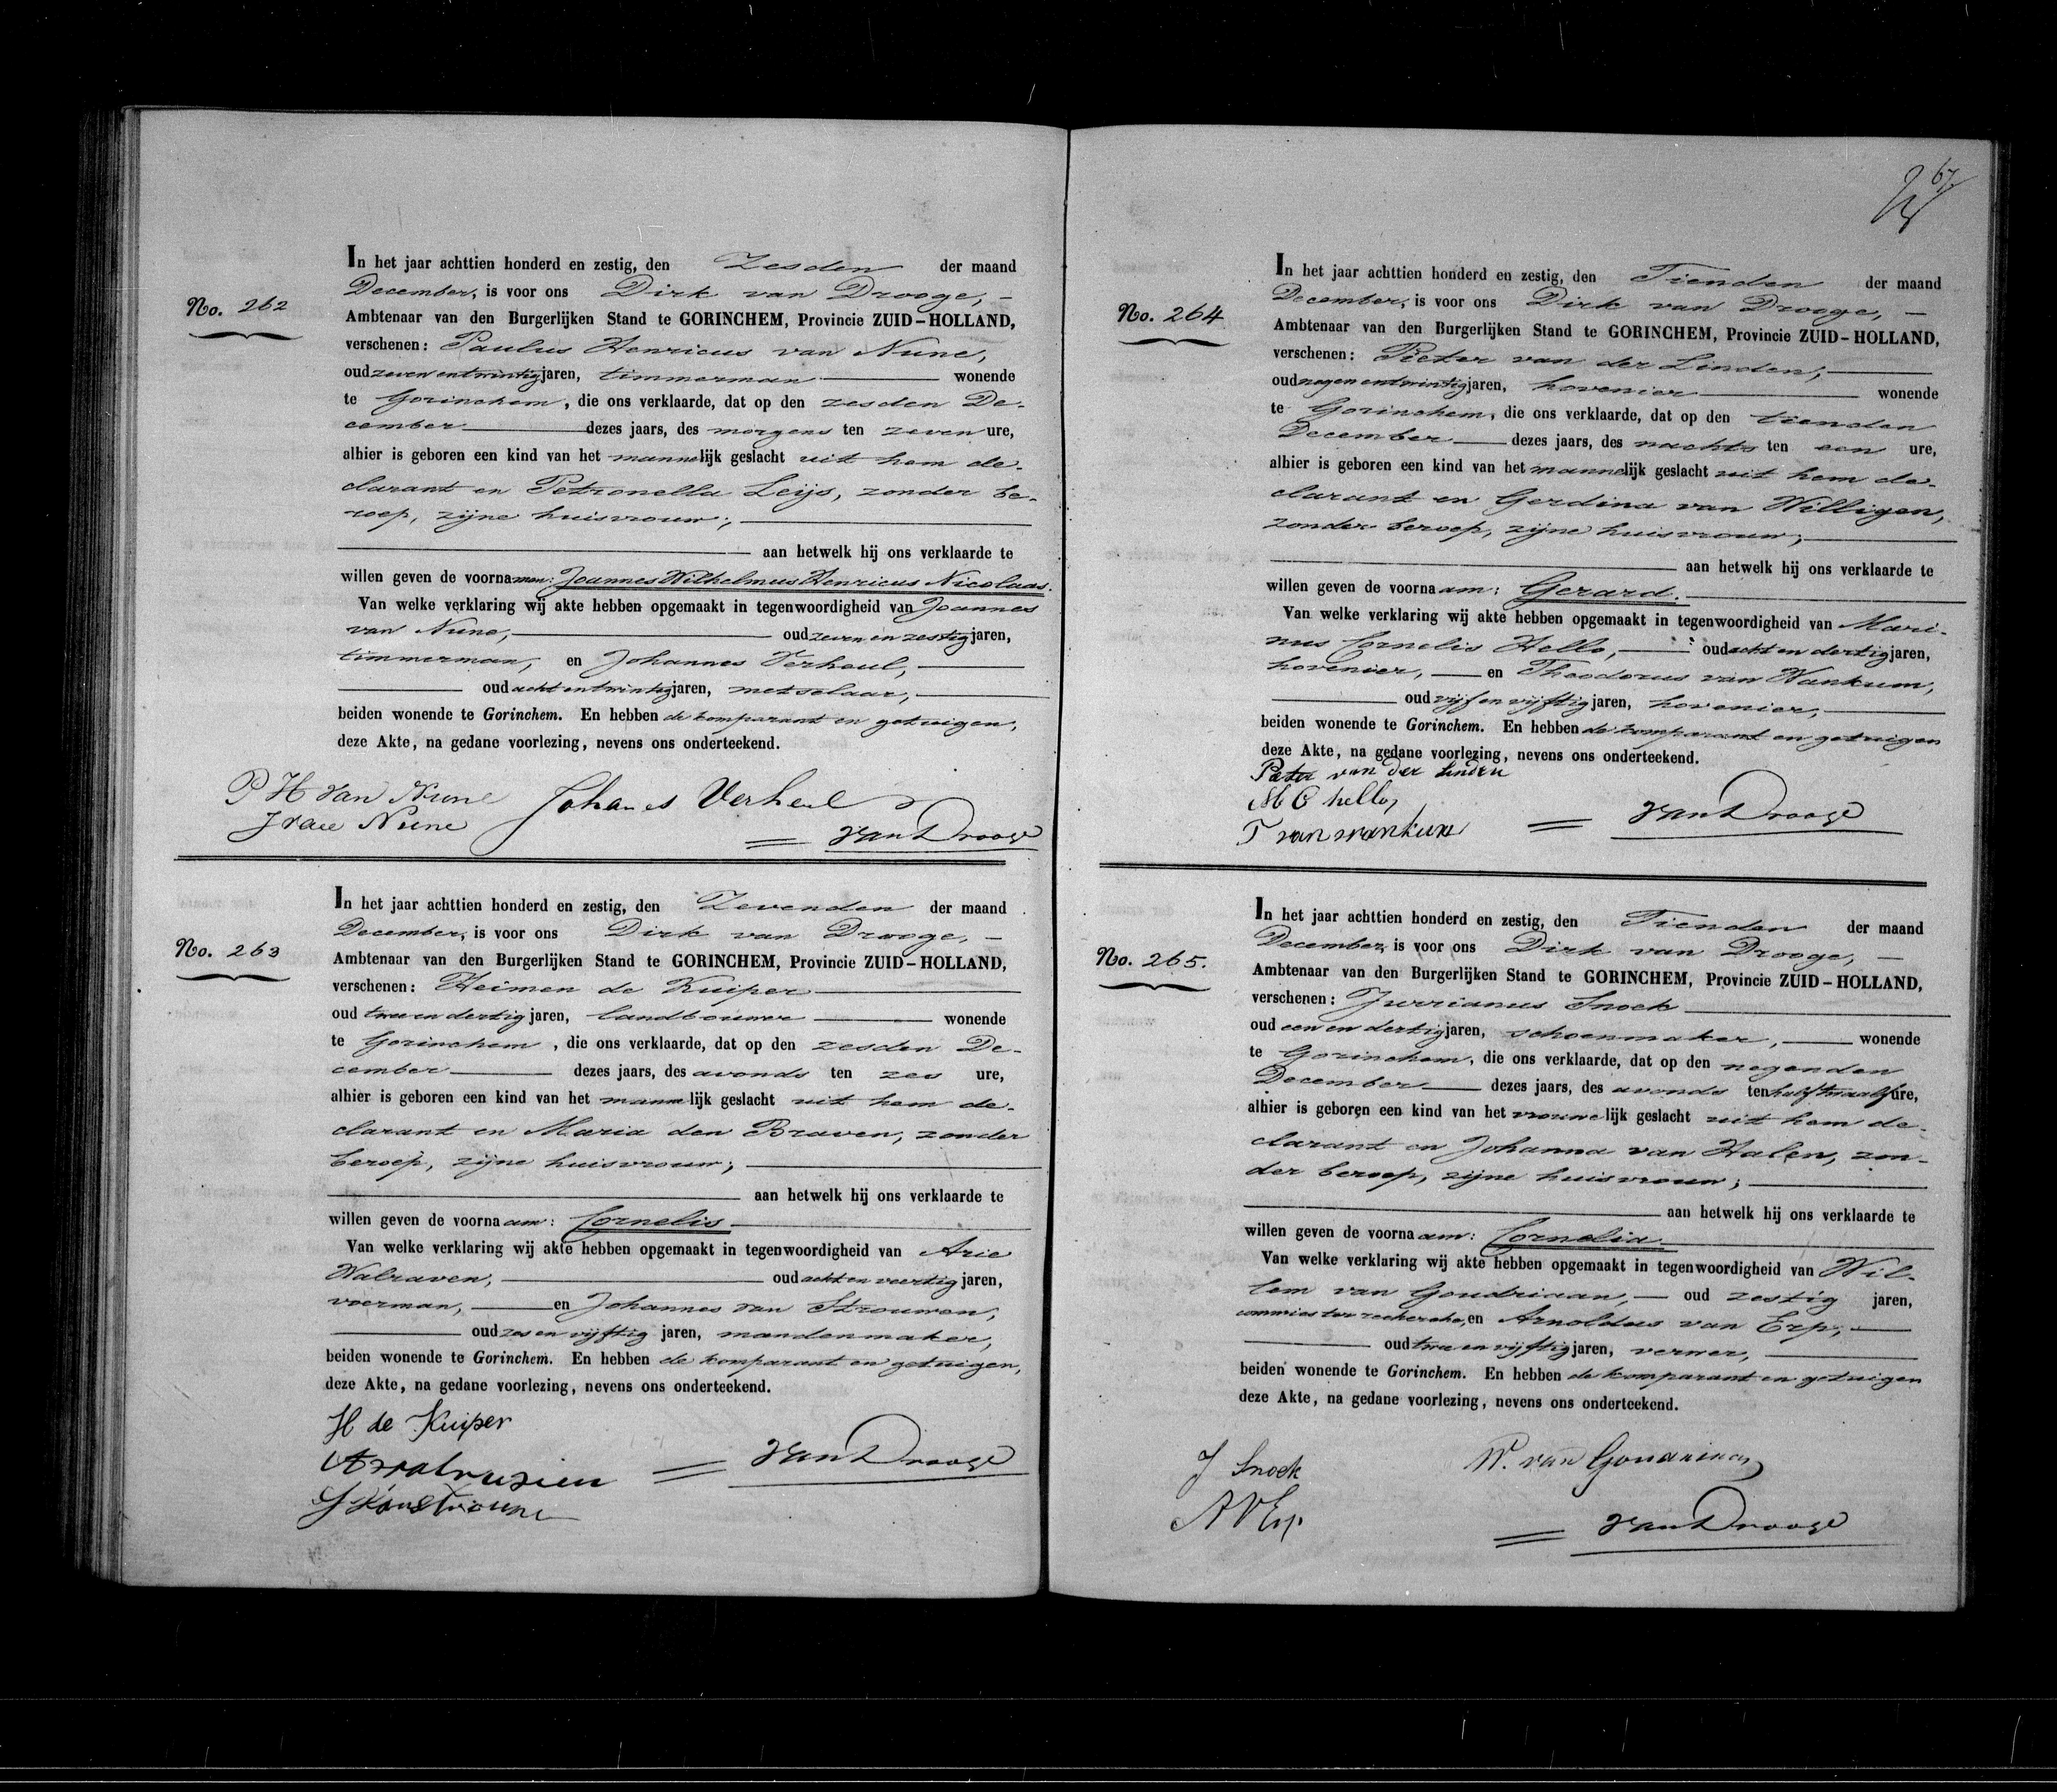 No. 262
In het jaar achttien honderd en zestig, den Zesden der maand
December, is voor ons Dirk van Drooge, –
Ambtenaar van den Burgerlijken Stand te GORINCHEM, Provincie ZUID-HOLLAND,
verschenen: Paulus Henricus van Nune,
oud zeven entwintig jaren, timmerman wonende
te Gorinchem, die ons verklaarde, dat op den zesden De-
cember dezes jaars, des morgens ten zeven ure,
alhier is geboren een kind van het mannelijk geslacht uit hem de-
clarant en Petronella Leijs, zonder be-
roep, zijne huisvrouw;
aan hetwelk hij ons verklaarde te
willen geven de voornamen: Joannes Wilhelmus Henricus Nicolaas.
Van welke verklaring wij akte hebben opgemaakt in tegenwoordigheid van Joannes
van Nune, oud zeven en zestig jaren,
timmerman, en Johannes Verheul,
oud acht entwintig jaren, metselaar,
beiden wonende te Gorinchem. En hebben de komparant en getuigen,
deze Akte, na gedane voorlezing, nevens ons onderteekend.
P H van Nune Johanes Verheul
J van Nune
van Drooge
No. 263
In het jaar achttien honderd en zestig, den Zevenden der maand
December, is voor ons Dirk van Drooge, –
Ambtenaar van den Burgerlijken Stand te GORINCHEM, Provincie ZUID-HOLLAND,
verschenen: Heimen de Kuiper
oud twee en dertig jaren, landbouwer wonende
te Gorinchem, die ons verklaarde, dat op den zesden De-
cember dezes jaars, des avonds ten zes ure,
alhier is geboren een kind van het mannelijk geslacht uit hem de-
clarant en Maria den Braven, zonder
beroep, zijne huisvrouw;
aan hetwelk hij ons verklaarde te
willen geven de voornaam: Cornelis
Van welke verklaring wij akte hebben opgemaakt in tegenwoordigheid van Arie
Walraven, oud acht en veertig jaren,
voerman, en Johannes van Strouwen,
oud zes en vijftig jaren, mandenmaker,
beiden wonende te Gorinchem. En hebben de komparant en getuigen,
deze Akte, na gedane voorlezing, nevens ons onderteekend.
H de Kuiper
van Drooge
67
No. 264
In het jaar achttien honderd en zestig, den Tienden der maand
December, is voor ons Dirk van Drooge, –
Ambtenaar van den Burgerlijken Stand te GORINCHEM, Provincie ZUID-HOLLAND,
verschenen: Pieter van der Linden,
oud negen entwintig jaren, hovenier wonende
te Gorinchem, die ons verklaarde, dat op den tienden
December dezes jaars, des nachts ten een ure,
alhier is geboren een kind van het mannelijk geslacht uit hem de-
clarant en Gerdina van Willigen,
zonder beroep, zijne huisvrouw;
aan hetwelk hij ons verklaarde te
willen geven de voornaam: Gerard.
Van welke verklaring wij akte hebben opgemaakt in tegenwoordigheid van Mari-
nus Cornelis Hello, oud acht en dertig jaren,
hovenier, en Theodorus van Wankum,
oud vijf en vijftig jaren, hovenier,
beiden wonende te Gorinchem. En hebben de komparant en getuigen
deze Akte, na gedane voorlezing, nevens ons onderteekend.
Pieter van der linden
M C hello
T van wankum
van Drooge
No. 265.
In het jaar achttien honderd en zestig, den Tienden der maand
December, is voor ons Dirk van Drooge, –
Ambtenaar van den Burgerlijken Stand te GORINCHEM, Provincie ZUID-HOLLAND,
verschenen: Jurrianus Snoek
oud een en dertig jaren, schoenmaker, wonende
te Gorinchem, die ons verklaarde, dat op den negenden
December dezes jaars, des avonds ten half twaalf ure,
alhier is geboren een kind van het vrouwelijk geslacht uit hem de-
clarant en Johanna van Halen, zon-
der beroep, zijne huisvrouw;
aan hetwelk hij ons verklaarde te
willen geven de voornaam: Cornelia
Van welke verklaring wij akte hebben opgemaakt in tegenwoordigheid van Wil-
lem van Goudriaan, oud zestig jaren,
commies ter recherche, en Arnoldus van Erp,
oud twee en vijftig jaren, verwer,
beiden wonende te Gorinchem. En hebben de komparant en getuigen
deze Akte, na gedane voorlezing, nevens ons onderteekend.
J Snoek W. van Goudriaan
A V Erp
van Drooge